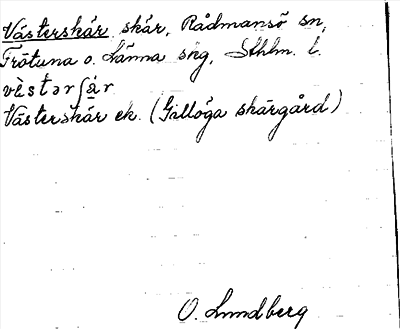 Västerskär, skär, Rådmansö sn,
Frötuna o. Länna skg, Sthlm. l.
vèstərʃà̱r
Västerskär ek. (Gillöga skärgård)
O. Lundberg